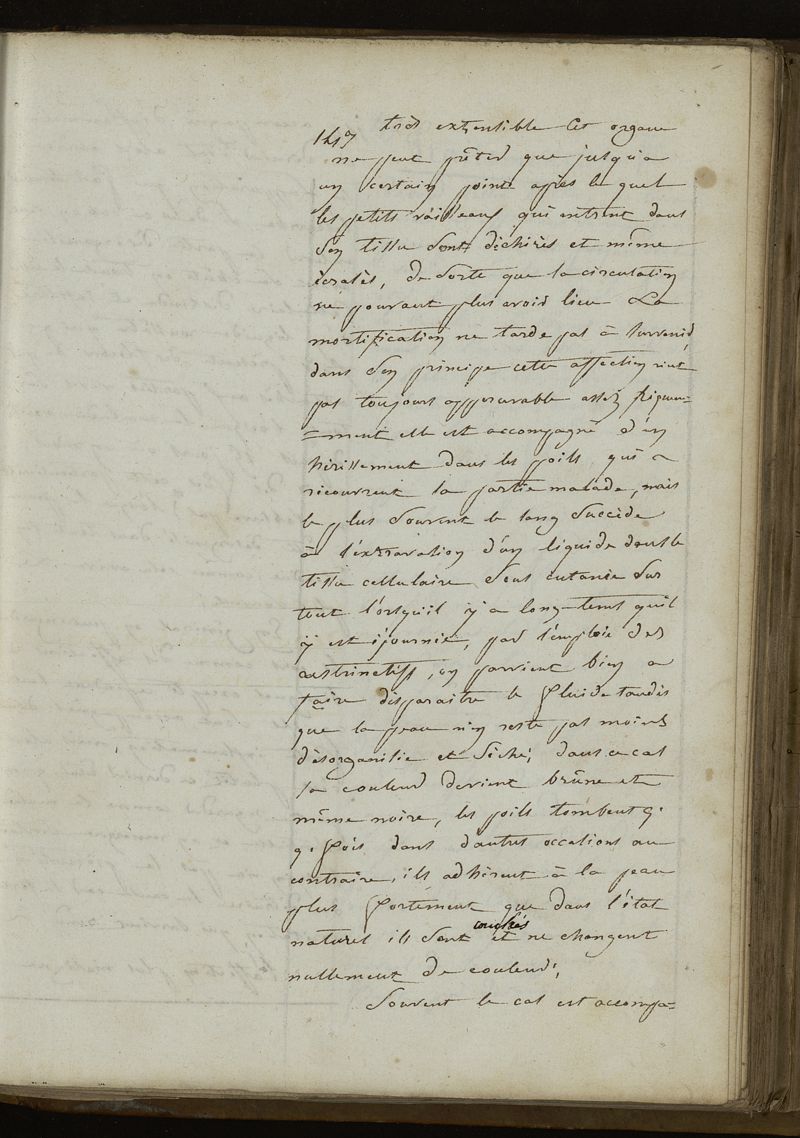 très extensible Cet organe
ne peut prêter que jusqu'a
un certain pointe après le quel
les petits vaisseaux qui entrent dans
son tissu sont déchirés et même
écrasés, de sorte que la circulation
ne pouvant plus avoir lieu La
mortification ne tarde pas à survenir
dans son principe cette affection n'est
pas toujours appercevable assez
=ment elle est accompagné d'un
hérissement dans les poils qui
recouvrent la partie malade, mais
le plus souvent le sang succède
à l'extravation d'un liquide dans le
tissu cellulaire sous cutanée sur
tout l'orsquil y a long-tems quil
y est sjournée, par l'emploie des
astrinctifs, on parvient bien a
faire disparaitre le fluide tandis
que la peau n'en reste pas moins
désorganisée et séche, dans ce cas
la couleur devient brûne et
même noire, les poils tombent q.
q. fois dans d'autres occations au
contraire, ils adhèrent à la peau
plus fortement que dans l'état
naturel ils sont couchés et ne changent
nullement de couleur,
Souvent le cas est accompa=